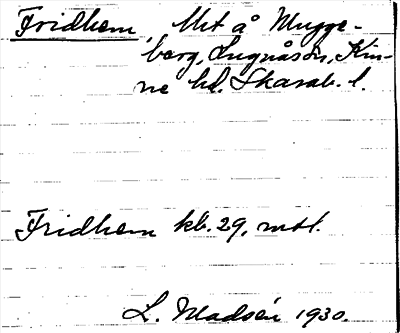 Fridhem, Utst å Mugge-
berg, Lugnåsön, Kin-
ne hd. Skarab. l.
Fridhem kb. 29, mtl.
L. Madsén 1930.